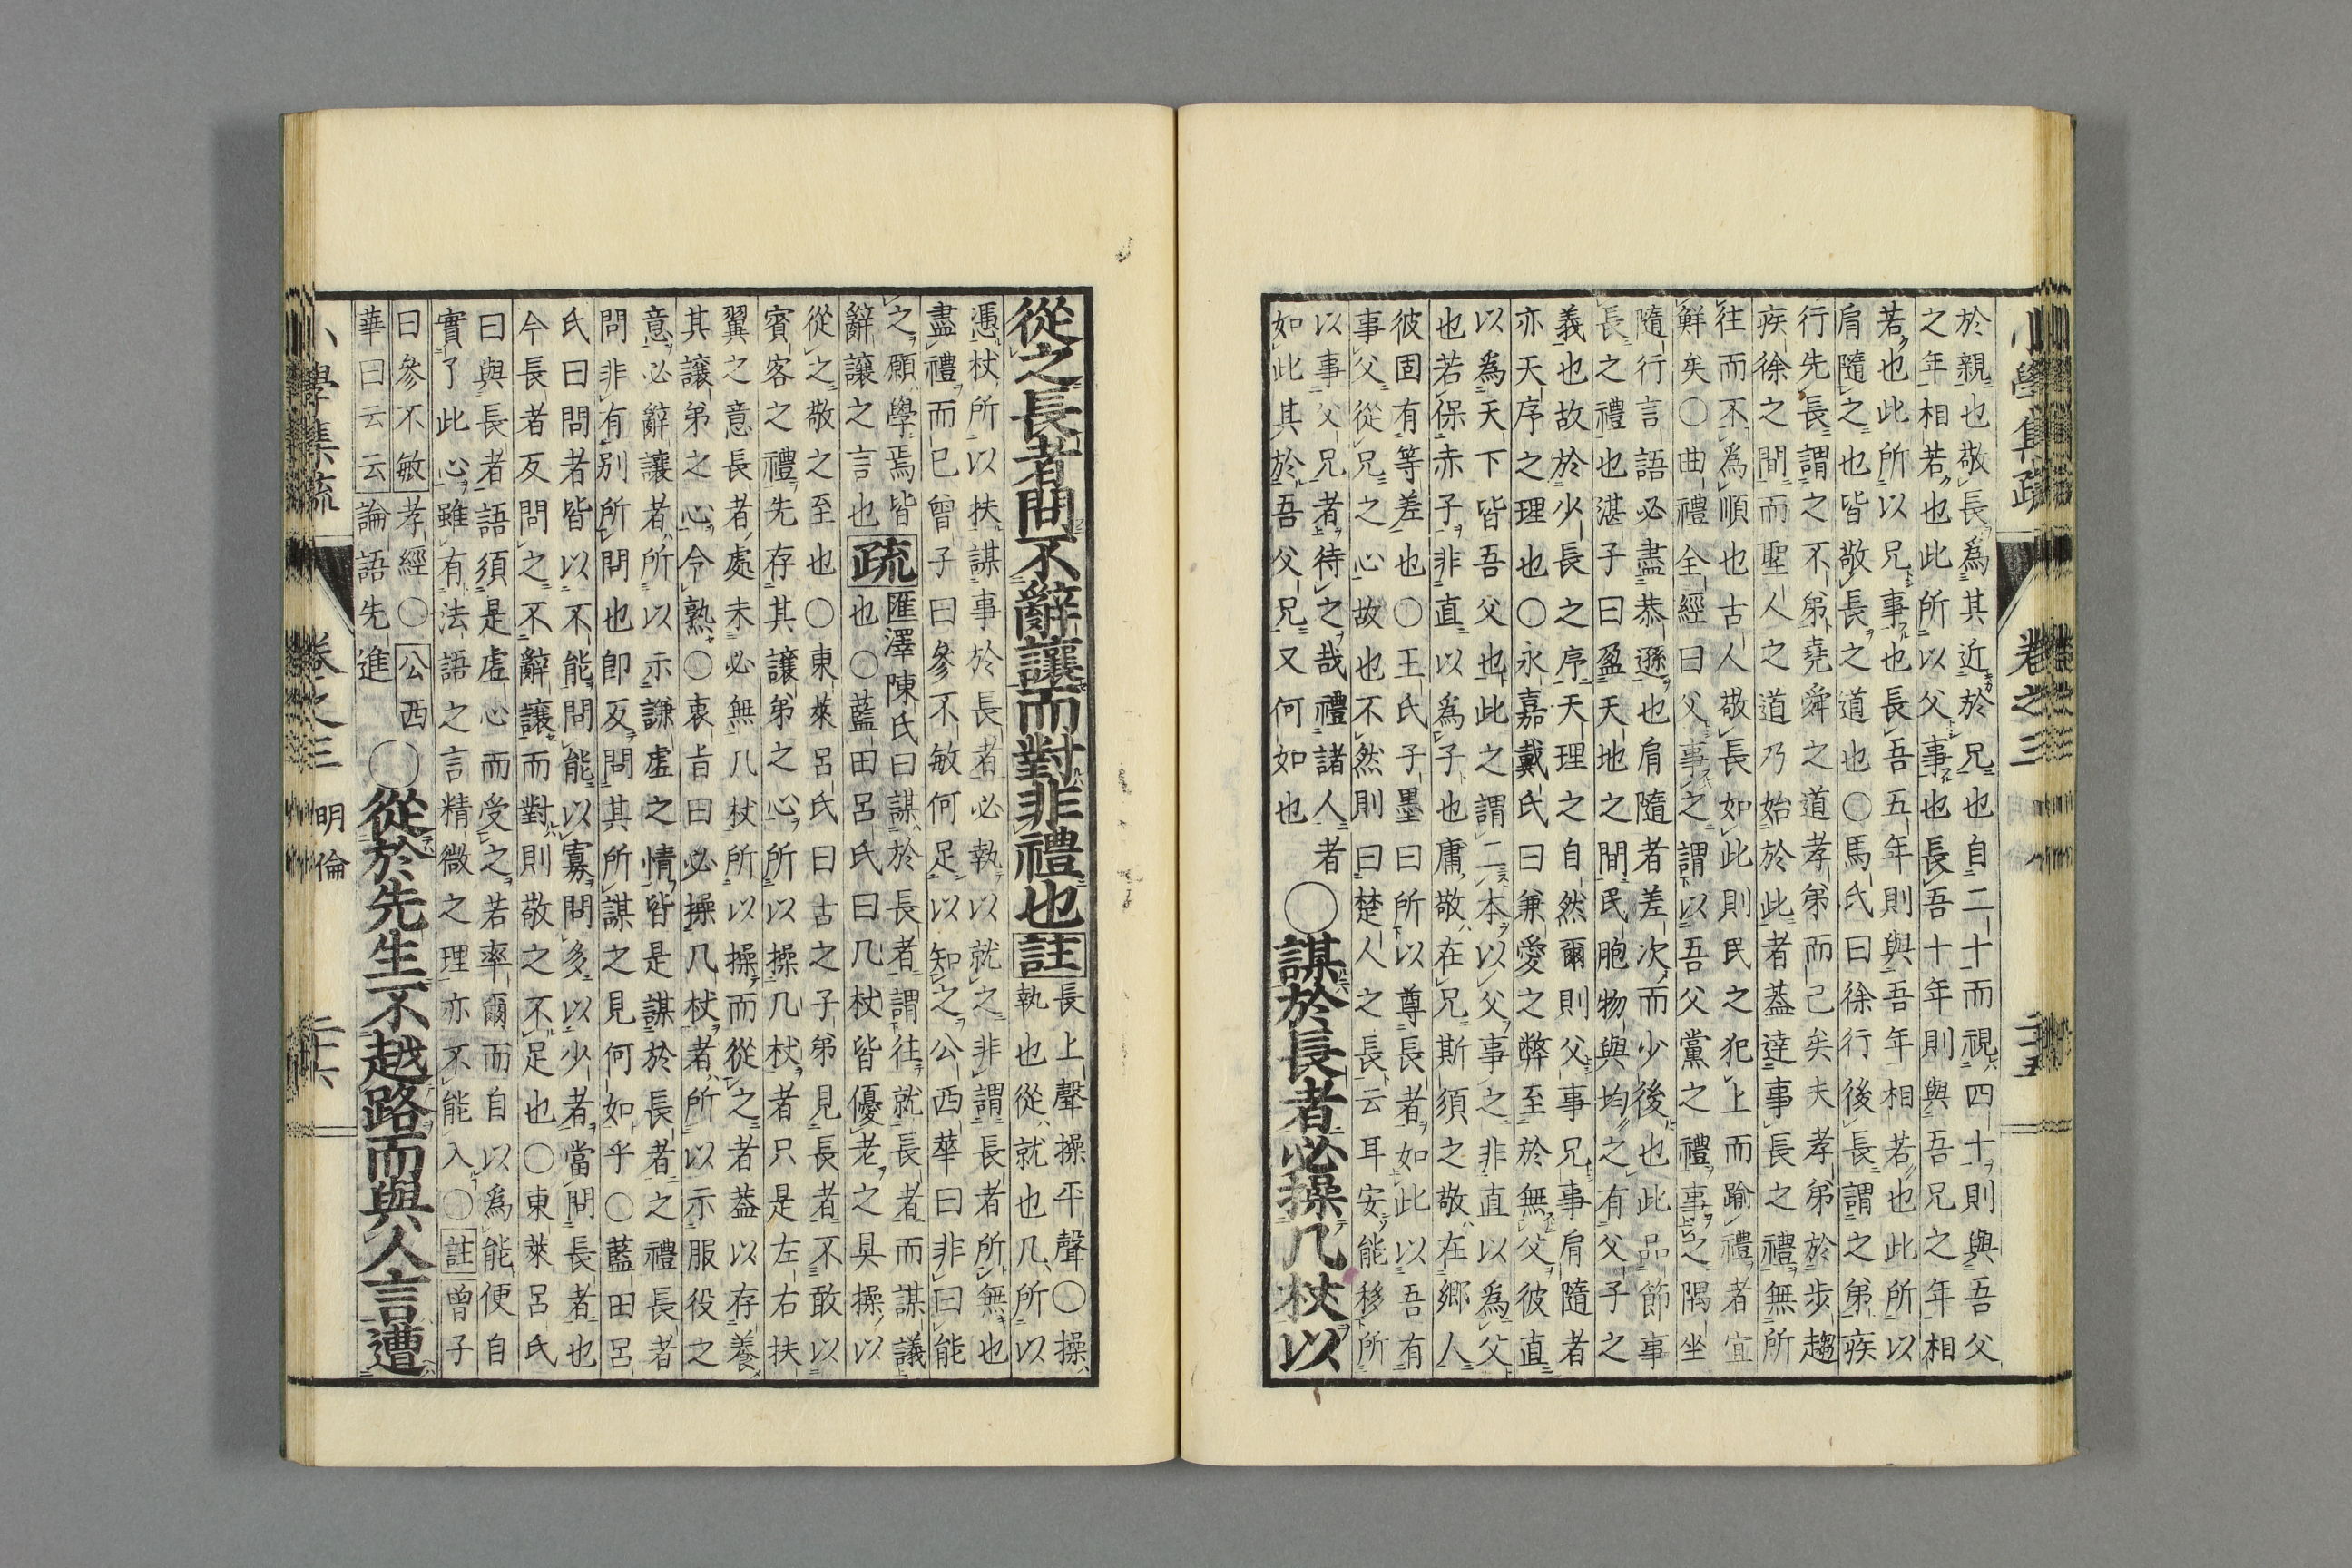 小學集疏 卷之三 二十五
於親也敬長爲其近於兄也自二十而視四十則與吾父
之年相若也此所以父事也長吾十年則與吾兄之年相
若也此所以兄事也長吾五年則與吾年相若也此所以
肩隨之也皆敬長之道也○馬氏曰徐行後長謂之弟疾
行先長謂之不弟堯舜之道孝弟而已矣夫孝弟於步趨
疾徐之間而聖人之道乃始於此者葢達事長之禮無所
往而不爲順也古人敬長如此則民之犯上而踰禮者宜
鮮矣○曲禮全經曰父事之謂以吾父黨之禮事之隅坐
隨行言語必盡恭遜也肩隨者差次而少後也此品節事
長之禮也湛子曰盈天地之間民胞物與均之有父子之
義也故於少長之序天理之自然爾則父事兄事肩隨者
亦天序之理也○永嘉戴氏曰兼愛之弊至於無父彼直
以爲天下皆吾父也此之謂二本以父事之非直以爲父
也若保赤子非直以爲子也庸敬在兄斯須之敬在鄉人
彼固有等差也○王氏子墨曰所以尊長者如此以吾有
事父從兄之心故也不然則曰楚人之長云耳安能移所
以事父兄者待之哉禮諸人者
如此其於吾父兄又何如也
○謀於長者必操几杖以
從之長者問不辭讓而對非禮也
註長上聲操平聲○操
執也從就也几所以
憑杖所以扶謀事於長者必執以就之非謂長者所無也
盡禮而已曾子曰參不敏何足以知之公西華曰非曰能
之願學焉皆
辭讓之言也
疏匯澤陳氏曰謀於長者謂往就長者而謀議
也○藍田呂氏曰几杖皆優老之具操以
從之敬之至也○東萊呂氏曰古之子弟見長者不敢以
賓客之禮先存其讓弟之心所以操几杖者只是左右扶
翼之意長者處未必無几杖所以操而從之者葢以存養
其讓弟之心令熟○衷旨曰必操几杖者所以示服役之
意必辭讓者所以示謙虛之情皆是謀於長者之禮長者
問非有別所問也卽反問其所謀之見何如乎○藍田呂
氏曰問者皆以不能問能以寡問多以少者當問長者也
今長者反問之不辭讓而對則敬之不足也○東萊呂氏
曰與長者語須是虛心而受之若率爾而自以爲能便自
實了此心雖有法語之言精微之理亦不能入○註曾子
曰參不敏孝經○公西
華曰云云論語先進
○從於先生不越路而與人言遭
小學集疏 卷之三 明倫 二十六